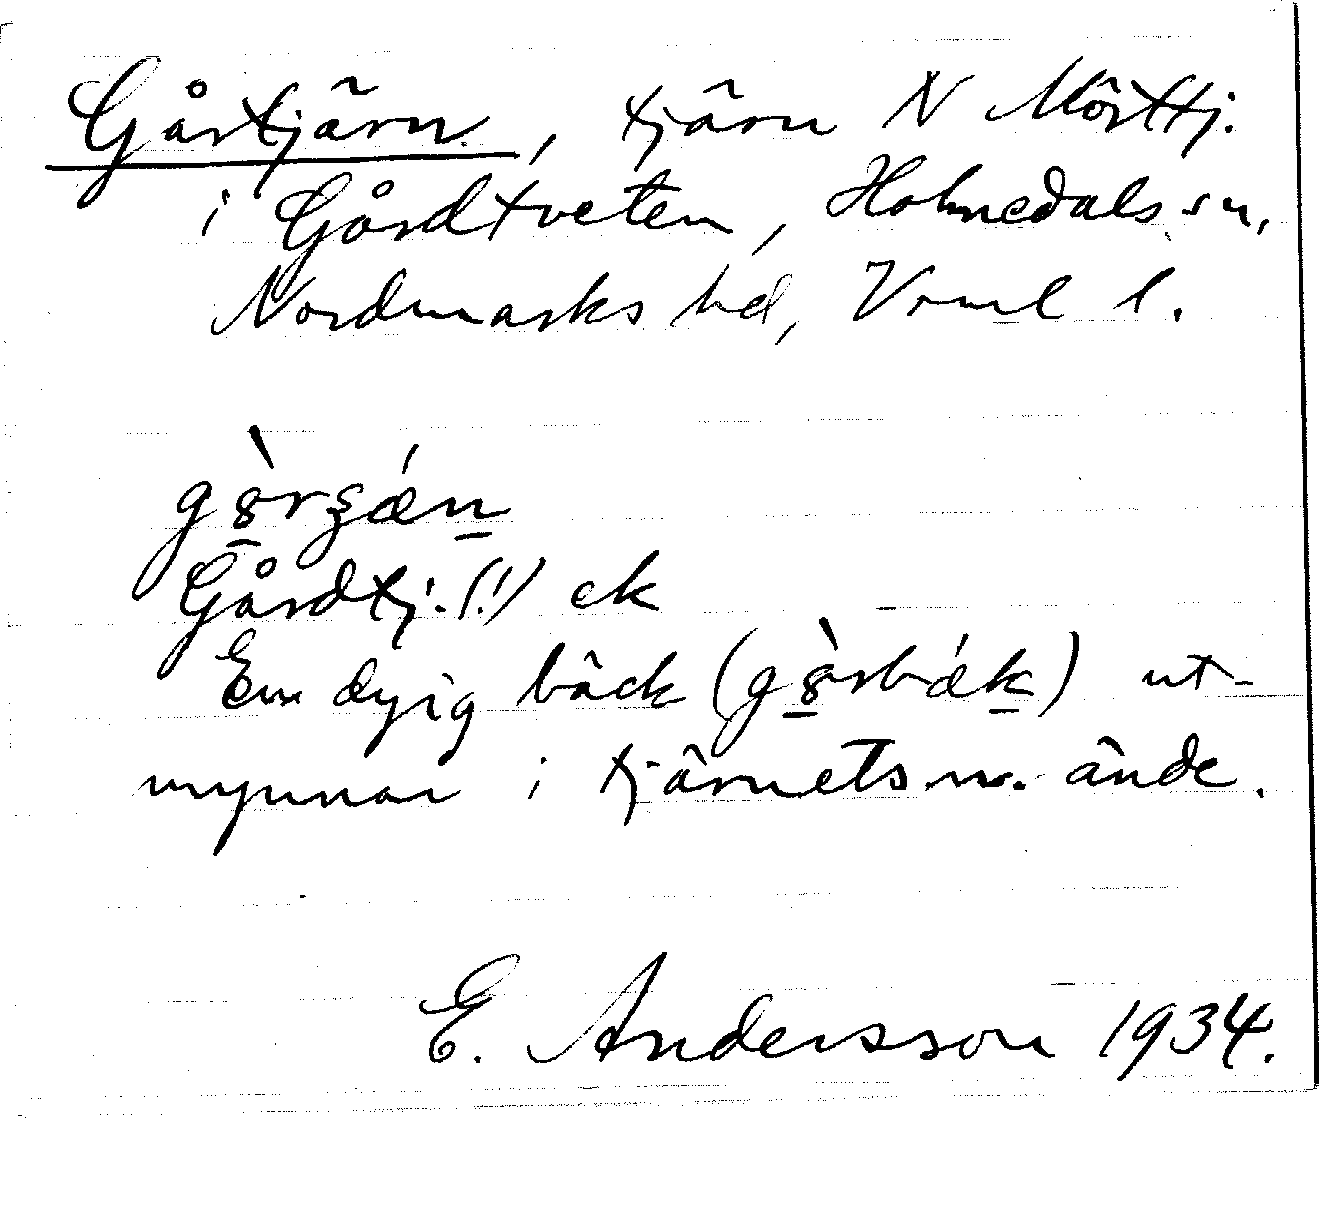 Gårtjärn, tjärn N Mörttj.
i Gårdtveten, Holmedals sn,
Nordmarks hd, Vrml l.
Gårdtj.(!) ek
En dyig bäck (gə̀rbǽk) ut-
mynnar i tjärnets n. ände.
E. Andersson 1934.